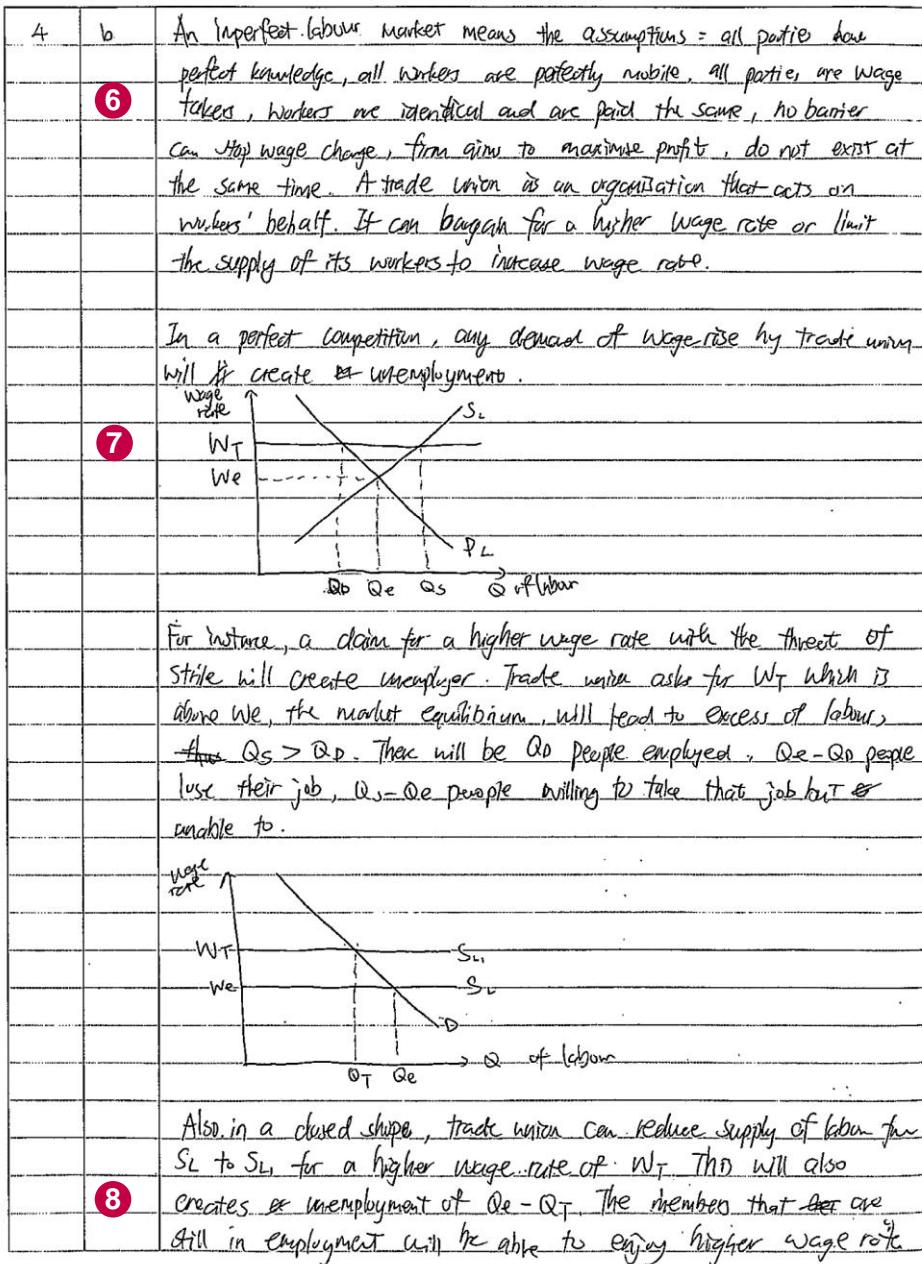 4 b An inperfect labour market means the assumptions = all partie have
perfect knowledge, all workers are pefectly mobile, all parties are wage
6 takers, workers are identical and are paid the same, no barrier
can stop wage change, firm aims to maximise profit, do not exist at
the same time. A trade union is an organisation that acts on
workers' behalf. It can bargain for a higher wage rate or limit
the supply of its workers to increase wage rate.
In a perfect competition, any demand of wage rise by trade union
will create unemployment.
Wage rate
SL
7 WT
We
DL
QD Qe Qs Q of labour
For instance, a claim for a higher wage rate with the threat of
strike will create unemployer. Trade union asks for WT which is
above We, the market equilibrium, will lead to excess of labour,
thus QS > QD. There will be QD people employed, Qe-QD people
lose their job, Qs-Qe people willing to take that job but
unable to.
Wage rate
WT SL1
We SL
D
QT Qe Q of labour
Also in a closed shope, trade union can reduce supply of labour from
SL to SL1 for a higher wage rate of WT. This will also
8 creates unemployment of Qe-QT. The members that are
still in employment will be able to enjoy higher wage rate